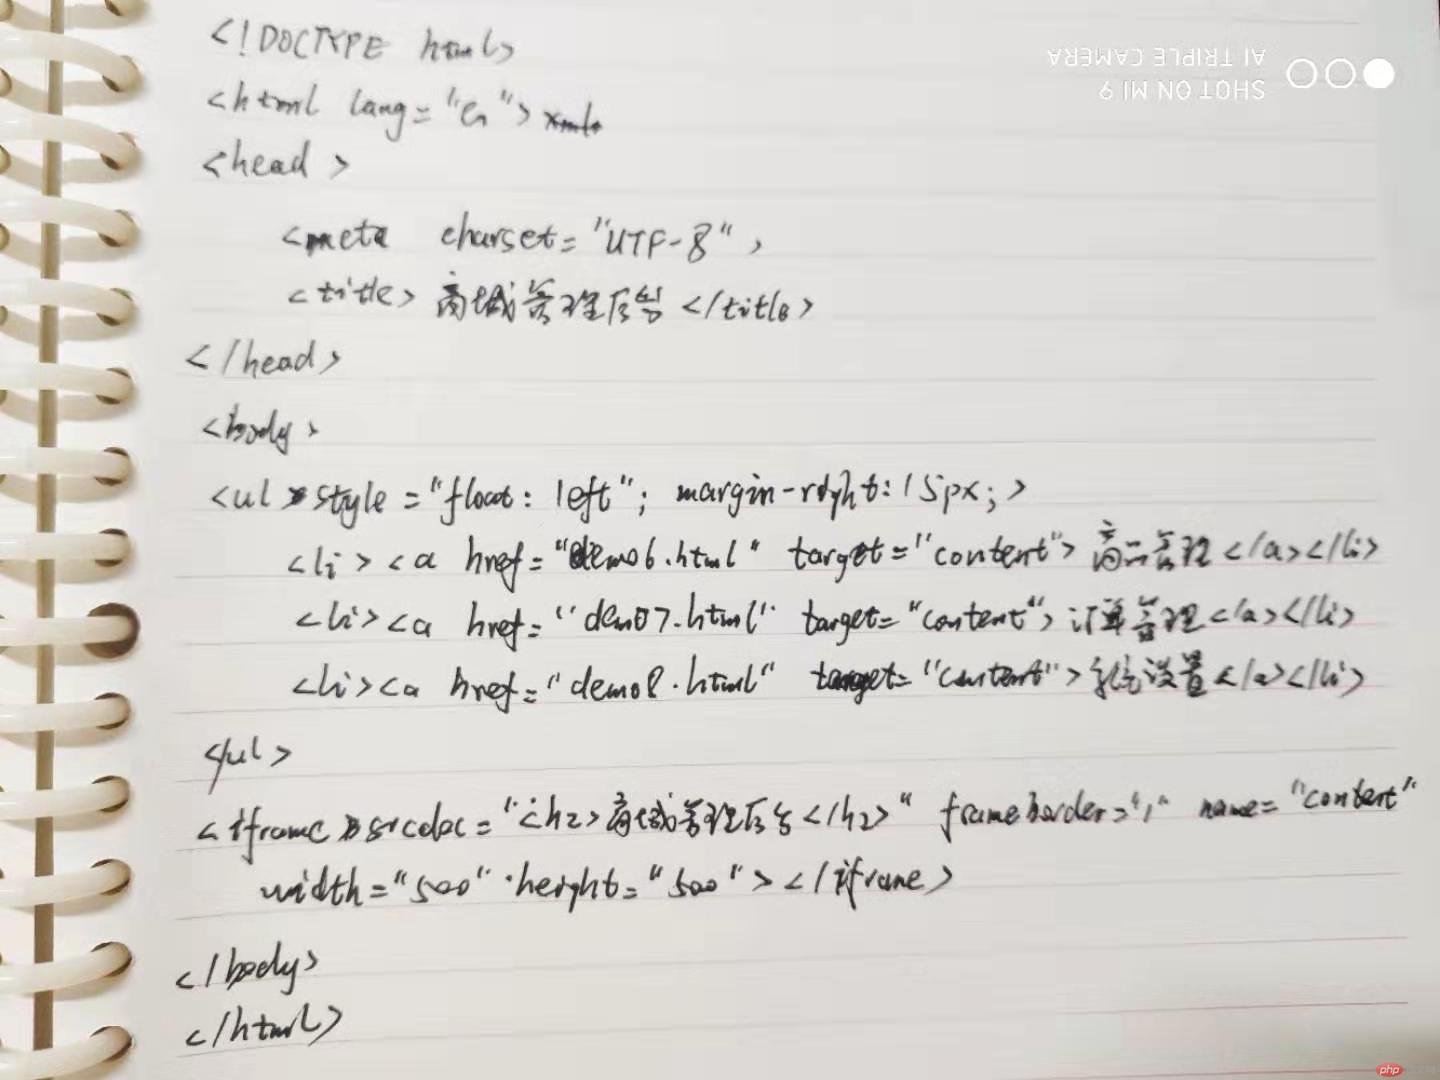 <!DOCTYPE html>
<html lang="en">
<head>
<meta charset="UTF-8">
<title>商城管理后台</title>
</head>
<body>
<ul style="float: left"; margin-right:15px;>
<li><a href="demo6.html" target="content">商品管理</a></li>
<li><a href="demo7.html" target="content">订单管理</a></li>
<li><a href="demo8.html" target="content">系统设置</a></li>
</ul>
<iframe srcdoc="<h2>商城管理后台</h2>" frameborder="1" name="content"
width="500" height="500"></iframe>
</body>
</html>
SHOT ON MI 9
AI TRIPLE CAMERA
php